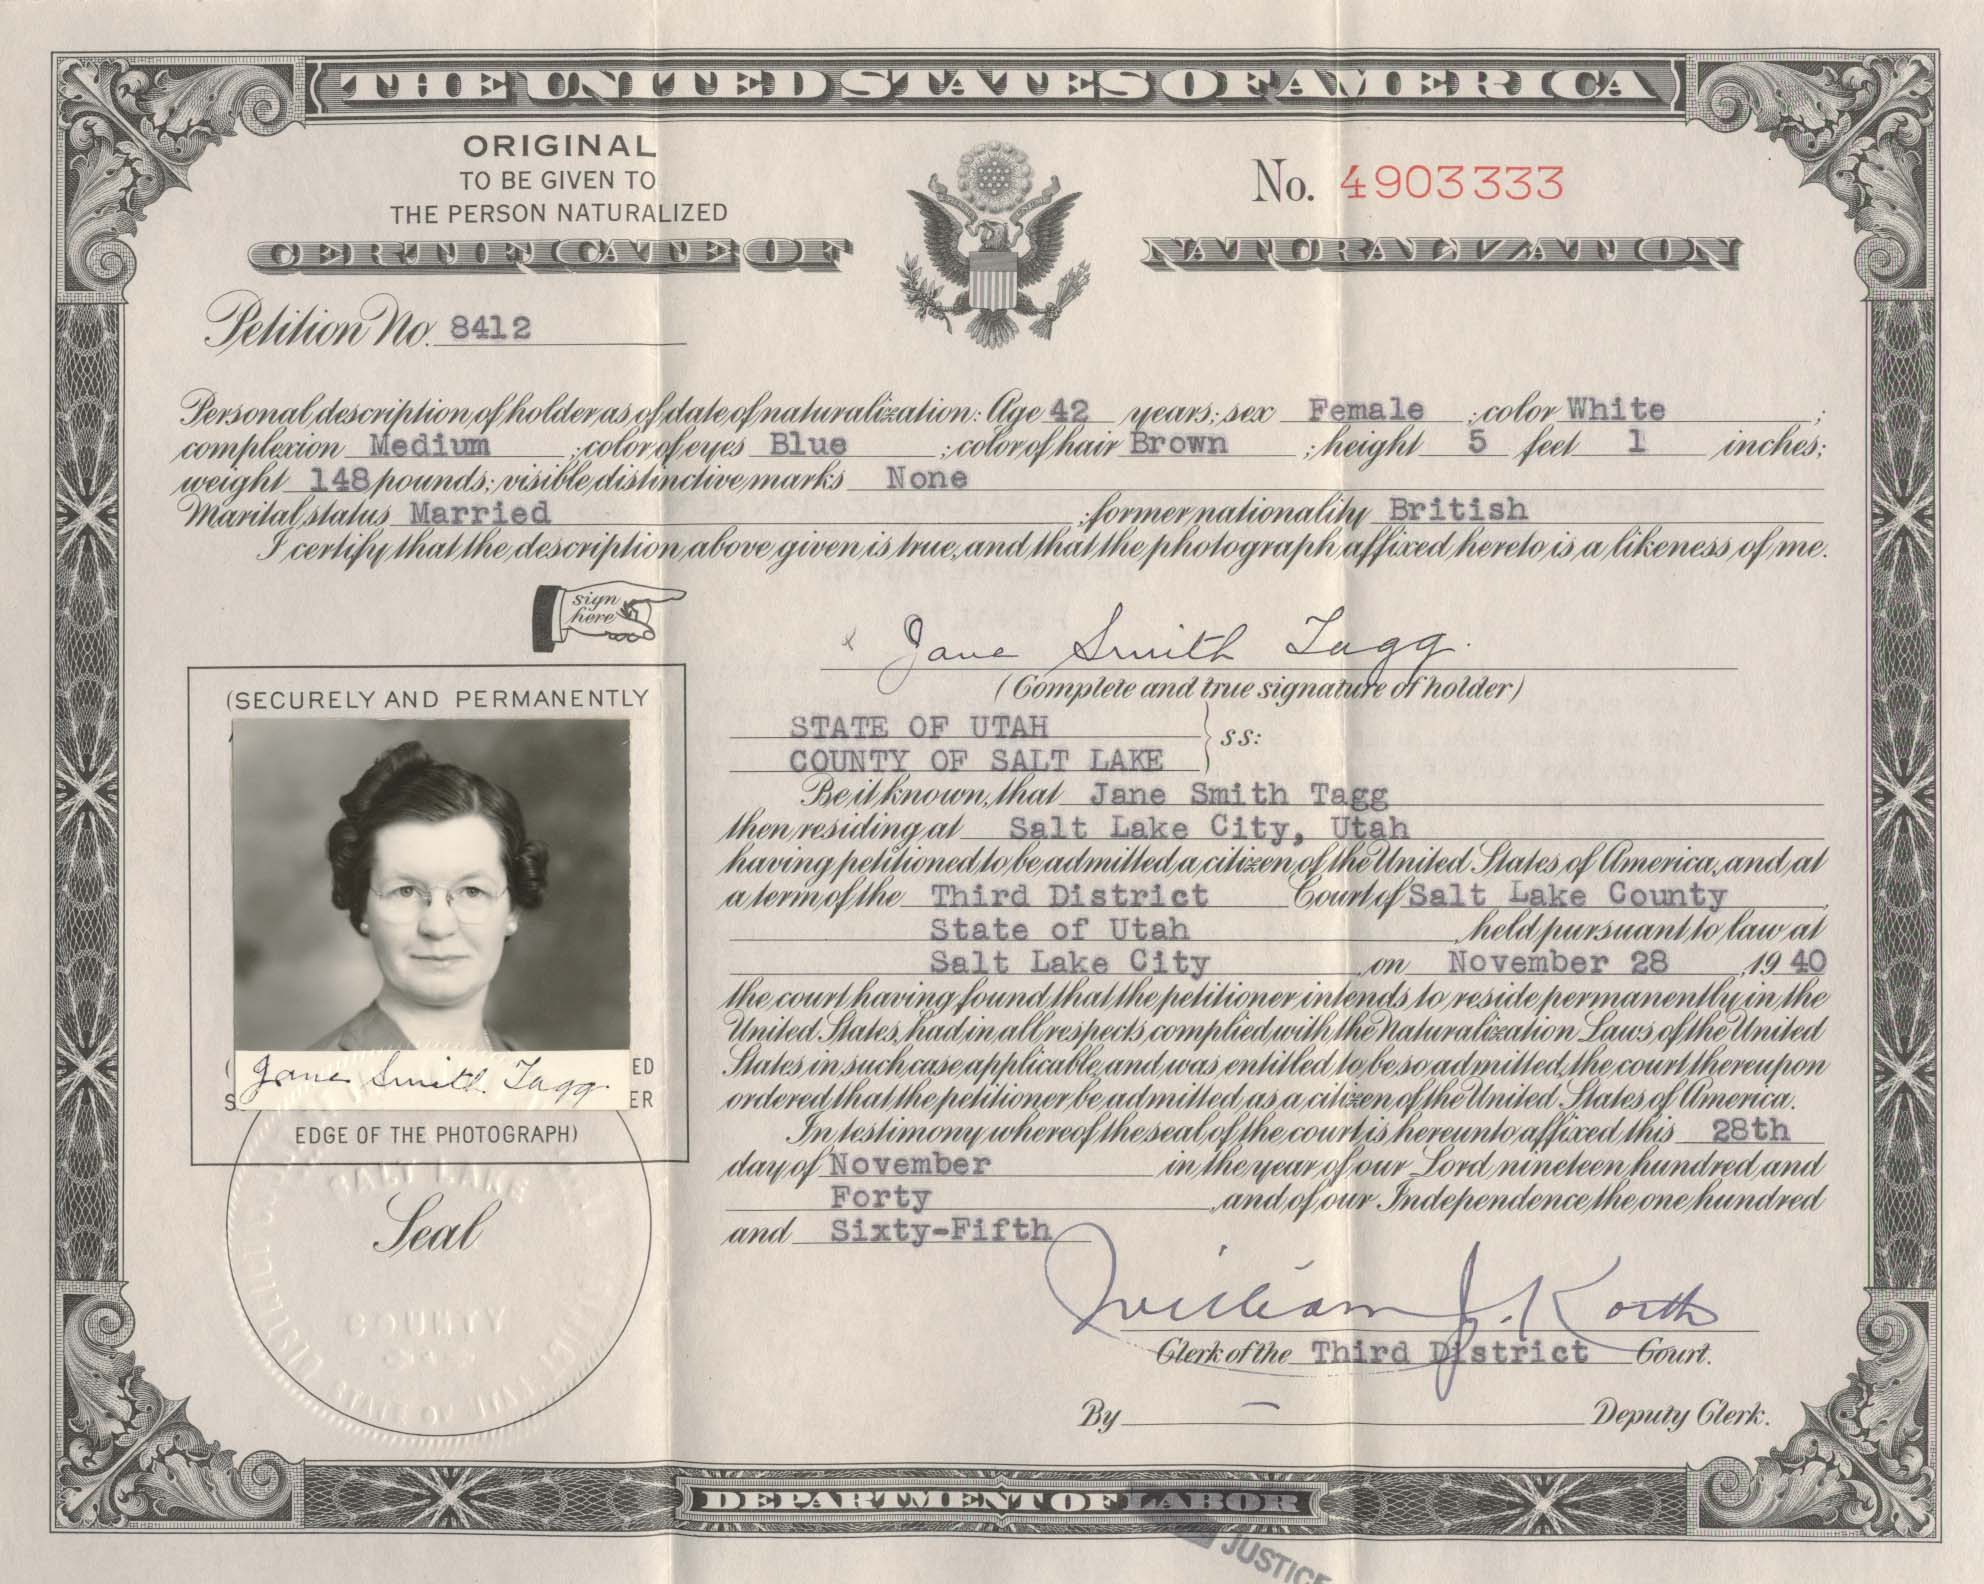 THE UNITED STATES OF AMERICA
ORIGINAL
TO BE GIVEN TO
THE PERSON NATURALIZED
No. 4903333
CERTIFICATE OF NATURALIZATION
Petition No. 8412
Personal description of holder as of date of naturalization: Age 42 years; sex Female ; color White ;
complexion Medium ; color of eyes Blue ; color of hair Brown ; height 5 feet 1 inches;
weight 148 pounds; visible distinctive marks None
Marital status Married ; former nationality British
I certify that the description above given is true, and that the photograph affixed hereto is a likeness of me.
sign
here
Jane Smith Tagg.
(Complete and true signature of holder)
(SECURELY AND PERMANENTLY
Jane Smith Tagg.
ED
ER
EDGE OF THE PHOTOGRAPH)
SALT LAKE
Seal
COUNTY
STATE OF UTAH
COUNTY OF SALT LAKE } ss:
Be it known, that Jane Smith Tagg
then residing at Salt Lake City, Utah
having petitioned to be admitted a citizen of the United States of America, and at
a term of the Third District Court of Salt Lake County
State of Utah held pursuant to law at
Salt Lake City on November 28 , 1940
the court having found that the petitioner intends to reside permanently in the
United States, had in all respects complied with the Naturalization Laws of the United
States in such case applicable, and was entitled to be so admitted, the court thereupon
ordered that the petitioner be admitted as a citizen of the United States of America.
In testimony whereof the seal of the court is hereunto affixed this 28th
day of November in the year of our Lord nineteen hundred and
Forty , and of our Independence the one hundred
and Sixty-Fifth
William J. Korth
Clerk of the Third District Court.
By - Deputy Clerk.
DEPARTMENT OF LABOR
JUSTICE